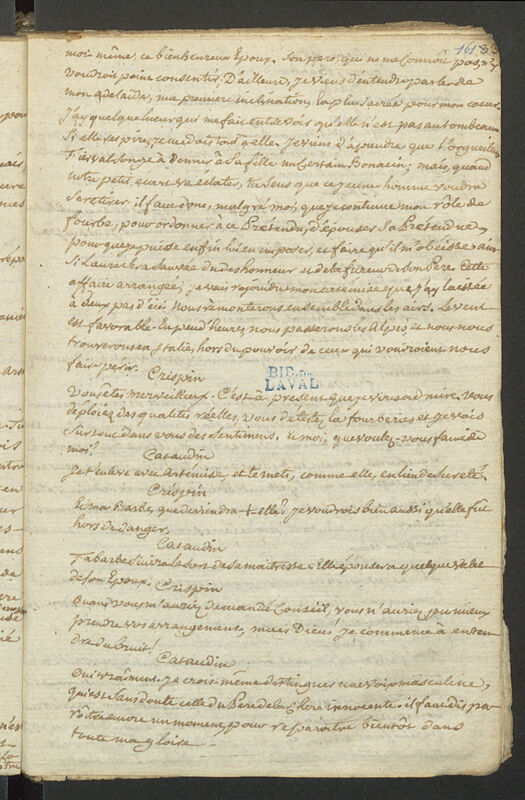 16133
moi-même, ce bienheureux Epoux. Son pere, qui ne me connoît pas, n'y
voudroit point consentir. D'ailleurs, je viens d'entendre parler de
mon adelaïde, ma premiere inclination, la plus Sacrée pour mon coeur.
J'ay quelque lueur qui me fait entrevoir qu'elle n'est pas au tombeau.
Si elle respire, je me dois tout a elle. Je viens d'aprendre que l'orgueilleux
songe à donner à Sa fille un Certain Bonacin; mais, quand
notre petit, ecervelé va éclater, tu Sens que ce jeune homme voudra
Se retirer. il faut donc, malgré moi, que je continue mon rôle de
fourbe, pour ordonner à ce Prétendu, d'épouser Sa Prétendue,
pour que je puisse enfin lui en imposer, et faire qu'il m'obéisse. ainsi
Si Laura sera Sauvée du deshonneur et de la fureur de Son Pere. Cette
affaire arrangée; je vais rejoindre mon artemise que j'ay laissée
à deux pas d'ici. Nous remonterons ensemble dans les airs. Le vent
est favorable. En peu d'heures, nous passerons les Alpes, et nous nous
trouverons en Italie, hors du pouvoir de ceux qui voudroient nous
faire périr.
Crispin
Vous êtes merveilleux. C'est à present que je vous admire. vous
déploiez des qualités réelles, vous détestez la fourberie, et je vois
Sur tout dans vous des Sentimens. et moi, que voulez-vous faire de
moi?
Cataudin
Je t'enleve avec Artémise, et te mets, comme elle, en lieu de Sureté.
Crispin
Et ma Barbe, que deviendra-t-elle? Je voudrois bien aussi qu'elle fut
hors de danger.
Cataudin
Ta barbe Suivra le Sort de Sa maitresse. Elle épousera quelque valet
de Son Epoux.
Crispin
Quand vous m'auriez demandé Conseil, vous n'auriez pu mieux
prendre vos arrangemens, mais Dieu! je commence à enten-
dre du bruit!
Cataudin
Oui vraîment. Je crois même distinguer une voix masculine,
qui est Sans doute celle du Pere de la Chere innocente. il faut dispa-
roître encore un moment, pour reparoitre bientôt dans
toute ma gloire.
BIB. DE
LAVAL